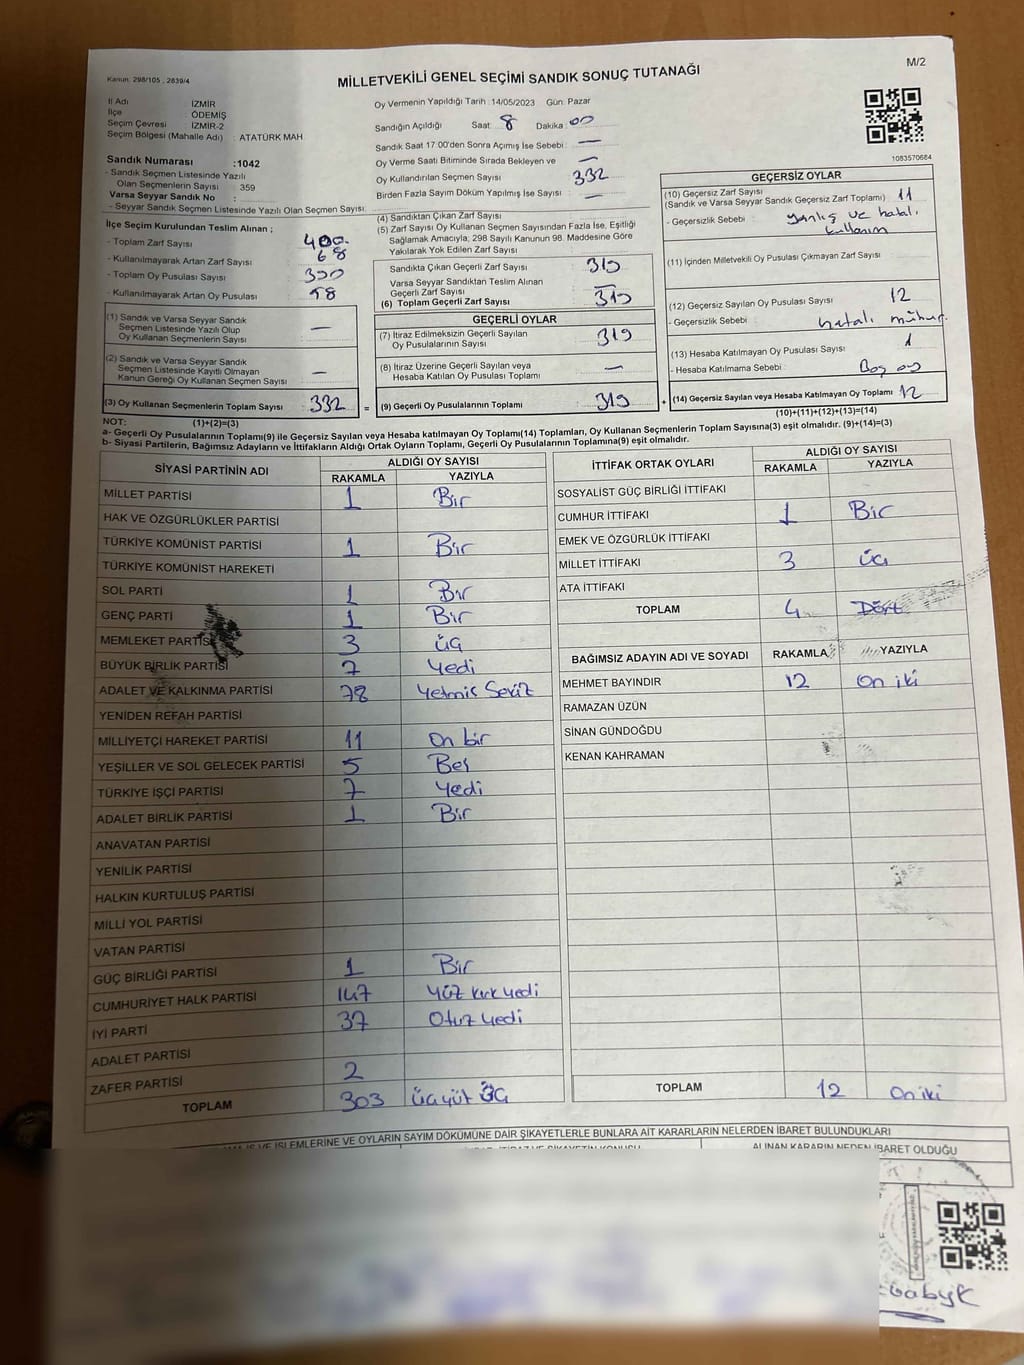 Kanun: 298/105 , 2839/4
MİLLETVEKİLİ GENEL SEÇİMİ SANDIK SONUÇ TUTANAĞI
M/2
İl Adı : İZMİR
İlçe : ÖDEMİŞ
Seçim Çevresi : İZMİR-2
Seçim Bölgesi (Mahalle Adı) : ATATÜRK MAH.
Sandık Numarası :1042
- Sandık Seçmen Listesinde Yazılı
Olan Seçmenlerin Sayısı : 359
Varsa Seyyar Sandık No :
- Seyyar Sandık Seçmen Listesinde Yazılı Olan Seçmen Sayısı:
Oy Vermenin Yapıldığı Tarih :14/05/2023 Gün: Pazar
Sandığın Açıldığı Saat: 8 Dakika: 00
Sandık Saat 17:00'den Sonra Açımış İse Sebebi: —
Oy Verme Saati Bitiminde Sırada Bekleyen ve —
Oy Kullandırılan Seçmen Sayısı : 332
Birden Fazla Sayım Döküm Yapılmış İse Sayısı : —
1083570684
İlçe Seçim Kurulundan Teslim Alınan ;
- Toplam Zarf Sayısı : 400
- Kullanılmayarak Artan Zarf Sayısı : 68
- Toplam Oy Pusulası Sayısı : 390
- Kullanılmayarak Artan Oy Pusulası : 58
(1) Sandık ve Varsa Seyyar Sandık
Seçmen Listesinde Yazılı Olup
Oy Kullanan Seçmenlerin Sayısı : —
(2) Sandık ve Varsa Seyyar Sandık
Seçmen Listesinde Kayıtlı Olmayan
Kanun Gereği Oy Kullanan Seçmen Sayısı : —
(3) Oy Kullanan Seçmenlerin Toplam Sayısı : 332
(1)+(2)=(3)
(4) Sandıktan Çıkan Zarf Sayısı :
(5) Zarf Sayısı Oy Kullanan Seçmen Sayısından Fazla İse, Eşitliği
Sağlamak Amacıyla, 298 Sayılı Kanunun 98. Maddesine Göre
Yakılarak Yok Edilen Zarf Sayısı :
Sandıkta Çıkan Geçerli Zarf Sayısı : 319
Varsa Seyyar Sandıktan Teslim Alınan
Geçerli Zarf Sayısı : —
(6) Toplam Geçerli Zarf Sayısı : 319
GEÇERLİ OYLAR
(7) İtiraz Edilmeksizin Geçerli Sayılan
Oy Pusulalarının Sayısı : 319
(8) İtiraz Üzerine Geçerli Sayılan veya
Hesaba Katılan Oy Pusulası Toplamı : —
= (9) Geçerli Oy Pusulalarının Toplamı : 319
GEÇERSİZ OYLAR
(10) Geçersiz Zarf Sayısı
(Sandık ve Varsa Seyyar Sandık Geçersiz Zarf Toplamı) : 11
- Geçersizlik Sebebi : yanlış ve hatalı
kullanım
(11) İçinden Milletvekili Oy Pusulası Çıkmayan Zarf Sayısı :
(12) Geçersiz Sayılan Oy Pusulası Sayısı : 12
- Geçersizlik Sebebi : hatalı mühür
(13) Hesaba Katılmayan Oy Pusulası Sayısı : 1
- Hesaba Katılmama Sebebi : Boş oy
+ (14) Geçersiz Sayılan veya Hesaba Katılmayan Oy Toplamı : 12
(10)+(11)+(12)+(13)=(14)
NOT:
a- Geçerli Oy Pusulalarının Toplamı(9) ile Geçersiz Sayılan veya Hesaba katılmayan Oy Toplamı(14) Toplamları, Oy Kullanan Seçmenlerin Toplam Sayısına(3) eşit olmalıdır. (9)+(14)=(3)
b- Siyasi Partilerin, Bağımsız Adayların ve İttifakların Aldığı Ortak Oyların Toplamı, Geçerli Oy Pusulalarının Toplamına(9) eşit olmalıdır.
SİYASİ PARTİNİN ADI ALDIĞI OY SAYISI
RAKAMLA YAZIYLA
MİLLET PARTİSİ 1 Bir
HAK VE ÖZGÜRLÜKLER PARTİSİ
TÜRKİYE KOMÜNİST PARTİSİ 1 Bir
TÜRKİYE KOMÜNİST HAREKETİ
SOL PARTİ 1 Bir
GENÇ PARTİ 1 Bir
MEMLEKET PARTİSİ 3 üç
BÜYÜK BİRLİK PARTİSİ 7 Yedi
ADALET VE KALKINMA PARTİSİ 78 Yetmiş Sekiz
YENİDEN REFAH PARTİSİ
MİLLİYETÇİ HAREKET PARTİSİ 11 On bir
YEŞİLLER VE SOL GELECEK PARTİSİ 5 Beş
TÜRKİYE İŞÇİ PARTİSİ 7 Yedi
ADALET BİRLİK PARTİSİ 1 Bir
ANAVATAN PARTİSİ
YENİLİK PARTİSİ
HALKIN KURTULUŞ PARTİSİ
MİLLİ YOL PARTİSİ
VATAN PARTİSİ
GÜÇ BİRLİĞİ PARTİSİ 1 Bir
CUMHURİYET HALK PARTİSİ 147 Yüz kırk yedi
İYİ PARTİ 37 Otuz yedi
ADALET PARTİSİ
ZAFER PARTİSİ 2
TOPLAM 303 üçyüz üç
İTTİFAK ORTAK OYLARI ALDIĞI OY SAYISI
RAKAMLA YAZIYLA
SOSYALİST GÜÇ BİRLİĞİ İTTİFAKI
CUMHUR İTTİFAKI 1 Bir
EMEK VE ÖZGÜRLÜK İTTİFAKI
MİLLET İTTİFAKI 3 üç
ATA İTTİFAKI
TOPLAM 4 Dört
BAĞIMSIZ ADAYIN ADI VE SOYADI RAKAMLA YAZIYLA
MEHMET BAYINDIR 12 On iki
RAMAZAN ÜZÜN
SİNAN GÜNDOĞDU
KENAN KAHRAMAN
TOPLAM 12 On iki
İŞLEMLERİNE VE OYLARIN SAYIM DÖKÜMÜNE DAİR ŞİKAYETLERLE BUNLARA AİT KARARLARIN NELERDEN İBARET BULUNDUKLARI
ALINAN KARARIN NEDEN İBARET OLDUĞU